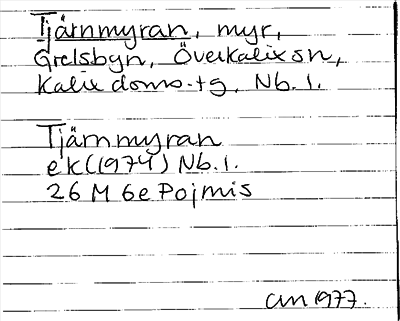 Tjärnmyran, myr,
Grelsbyn, Överkalix sn,
Kalix doms.tg, Nb.l.
Tjärnmyran
ek (1974) Nb.l.
26 M 6e Pojmis
1977.